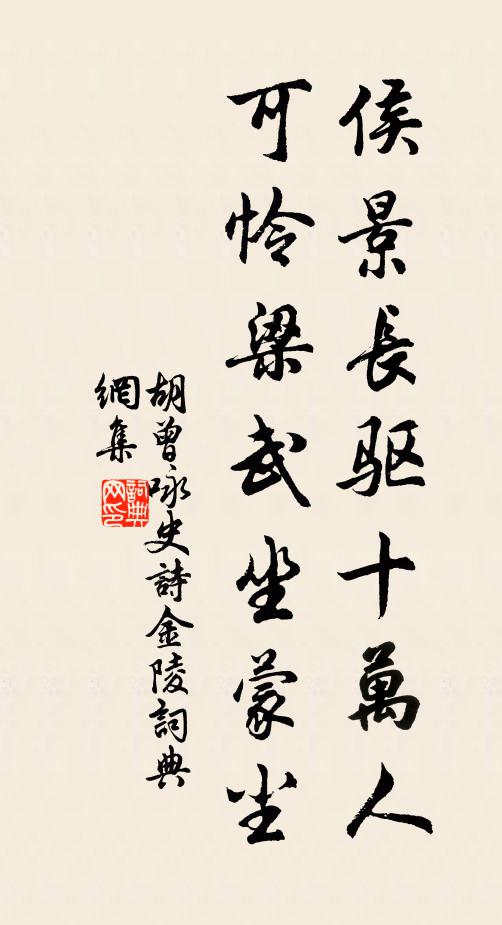 侯景長驱十萬人
可怜梁武坐蒙尘
胡曾咏史詩金陵詞典
網集
詞典
网印